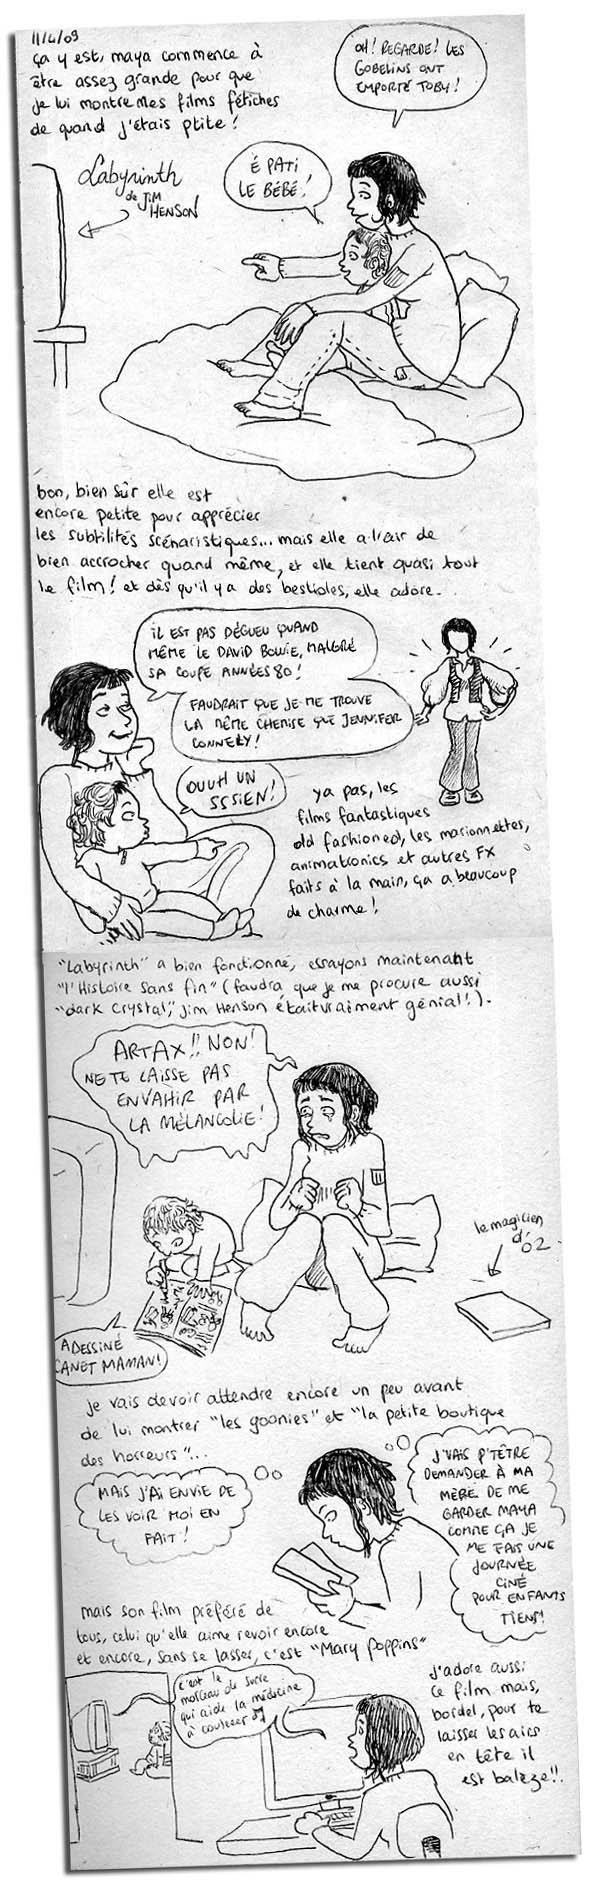 11/4/09
ça y est, maya commence à
être assez grande pour que
je lui montre mes films fétiches
de quand j'étais ptite !
OH! REGARDE! LES
GOBELINS ONT
EMPORTÉ TOBY!
Labyrinth
de JIM
HENSON
É PATI
LE BÉBÉ!
bon, bien sûr elle est
encore petite pour apprécier
les subtilités scénaristiques... mais elle a l'air de
bien accrocher quand même, et elle tient quasi tout
le film! et dès qu'il y a des bestioles, elle adore.
IL EST PAS DÉGUEU QUAND
MÊME LE DAVID BOWIE, MALGRÉ
SA COUPE ANNÉES 80!
FAUDRAIT QUE JE ME TROUVE
LA MÊME CHEMISE QUE JENNIFER
CONNELY!
OUUH UN
SSSIEN!
ya pas, les
films fantastiques
old fashioned, les marionnettes,
animatronics et autres FX
faits à la main, ça a beaucoup
de charme!
"Labyrinth" a bien fonctionné, essayons maintenant
"l'Histoire sans fin" (faudra que je me procure aussi
"dark crystal", Jim Henson était vraiment génial!).
ARTAX!! NON!
NE TE LAISSE PAS
ENVAHIR PAR
LA MÉLANCOLIE!
le magicien
d'OZ
A DESSINÉ
CANET MAMAN!
je vais devoir attendre encore un peu avant
de lui montrer "les goonies" et "la petite boutique
des horreurs"...
MAIS J'AI ENVIE DE
LES VOIR MOI EN
FAIT!
J'VAIS P'TÊTRE
DEMANDER À MA
MÈRE DE ME
GARDER MAYA
COMME ÇA JE
ME FAIS UNE
JOURNÉE
CINÉ
POUR ENFANTS
TIENS!
mais son film préféré de
tous, celui qu'elle aime revoir encore
et encore, sans se lasser, c'est "Mary Poppins"
c'est le
morceau de sucre
qui aide la médecine
à couleeer
J'adore aussi
ce film mais,
bordel, pour te
laisser les airs
en tête il
est balèze!!